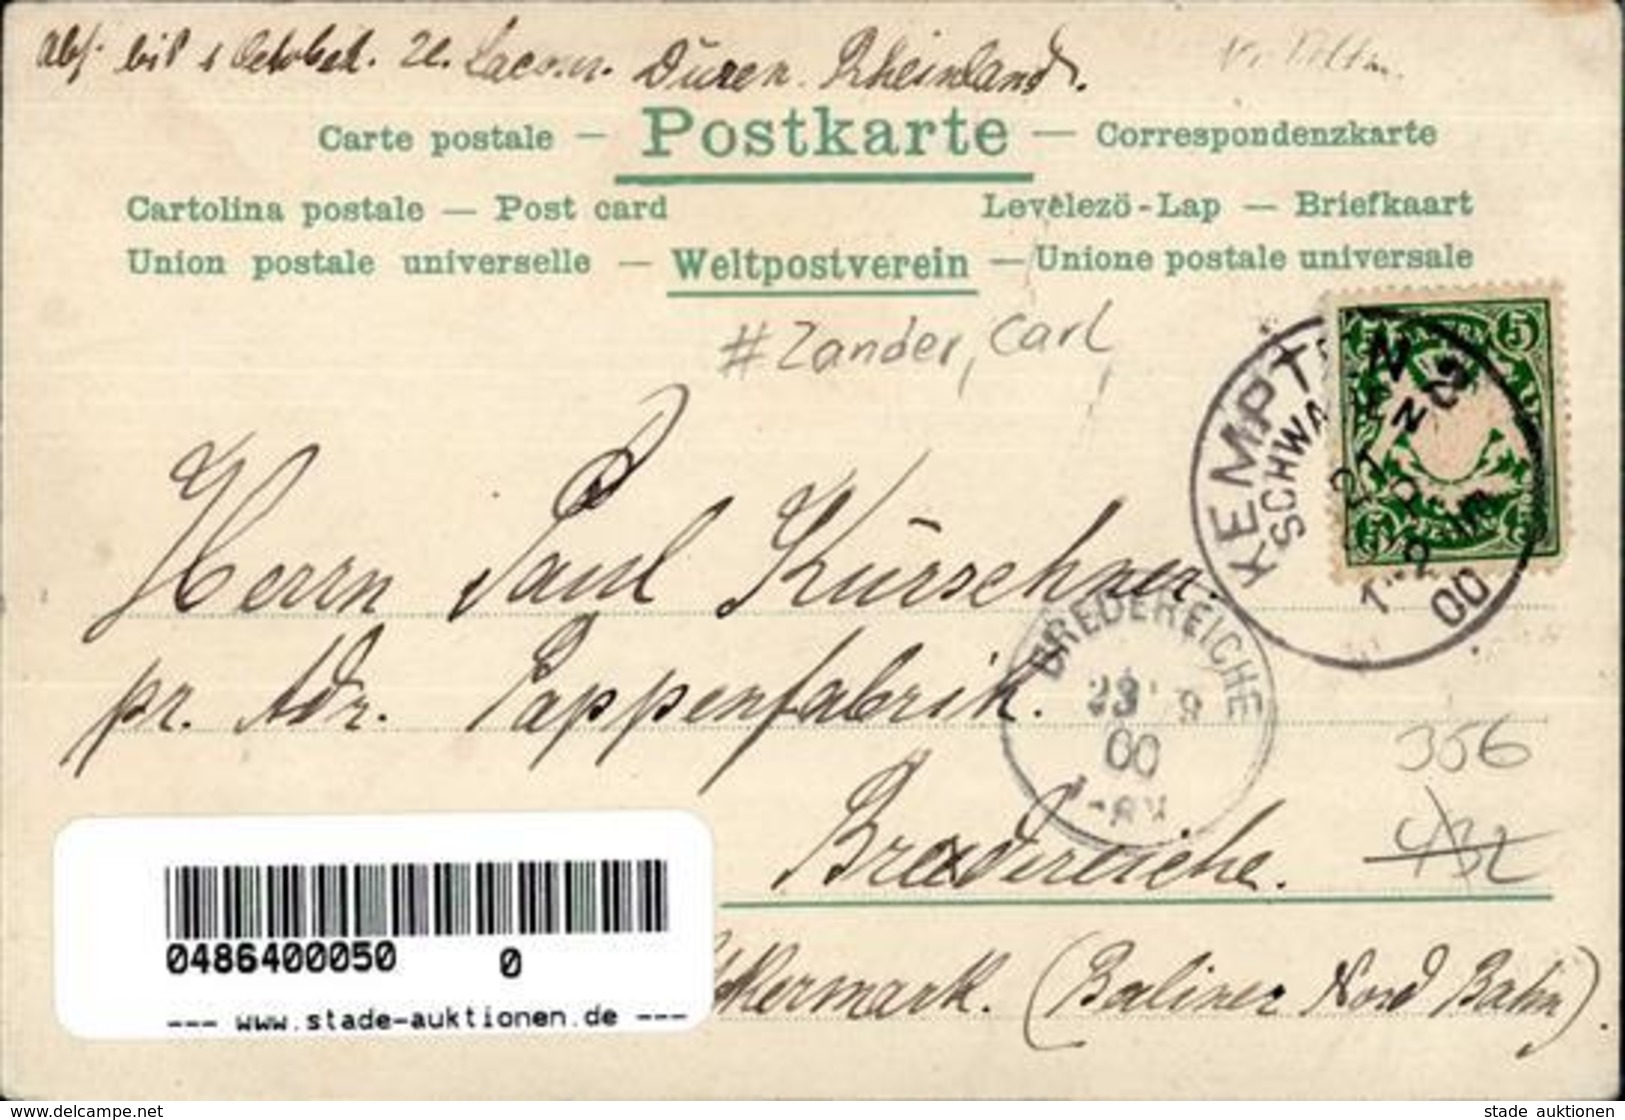 Abs. bis 1 October. Düren. Rheinland.
Carte postale — Postkarte — Correspondenzkarte
Cartolina postale — Post card Levelezö-Lap — Briefkaart
Union postale universelle — Weltpostverein — Unione postale universale
#Zander, Carl
KEMPTEN 2
SCHWABEN
5 5
5 5
21
00
Herrn Paul Kürschner.
BREDEREICHE
23 9
00
pr. Adr. Pappenfabrik.
356
432
Bredereiche.
Uckermark. (Berliner Nord Bahn).
0486400050 0
--- www.stade-auktionen.de ---
www.delcampe.net
stade auktionen